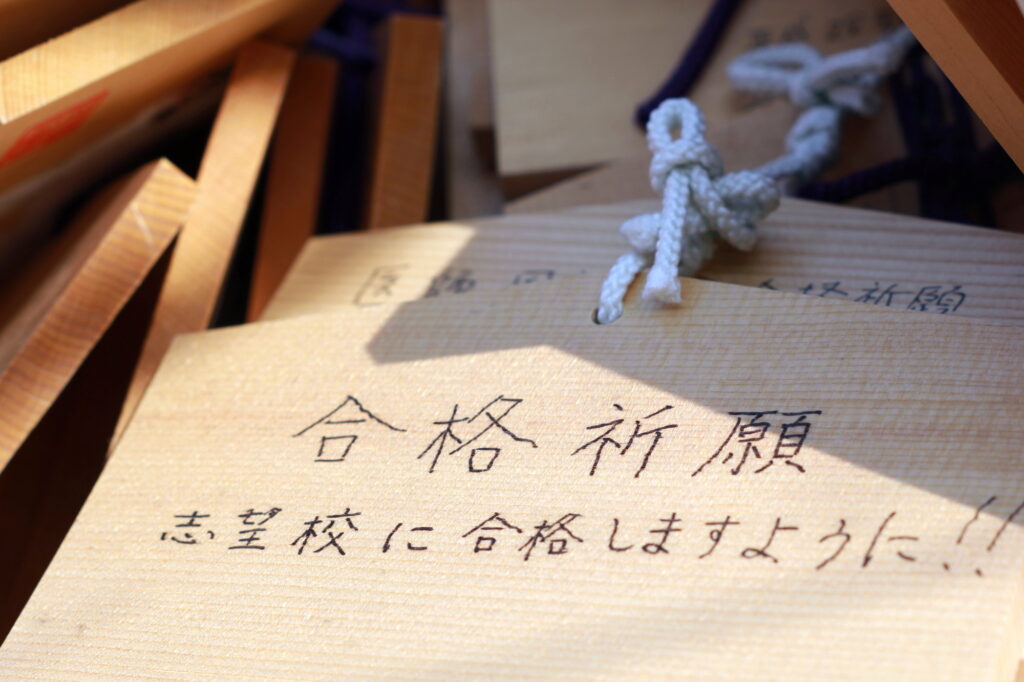 合格祈願
合格祈願
志望校に合格しますように!!